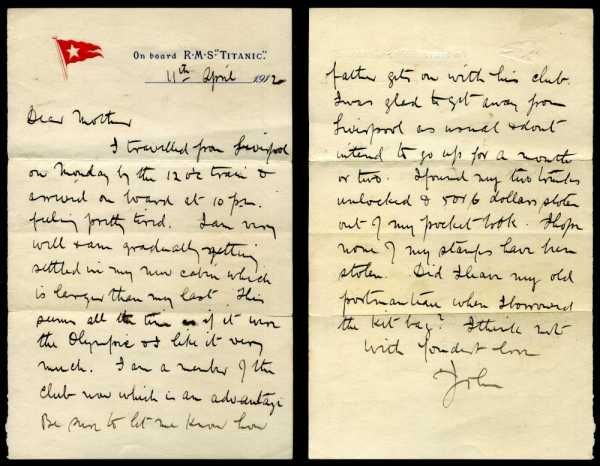 On board R·M·S "TITANIC".
11th April 1912
Dear Mother
I travelled from Liverpool
on Monday by the 12 o'c train &
arrived on board at 10 pm.
feeling pretty tired. I am very
well & am gradually getting
settled in my new cabin which
is larger than my last. This
seems all the time as if it were
the Olympic & I like it very
much. I am a member of the
Club now which is an advantage
Be sure to let me know how
father gets on with his club.
I was glad to get away from
Liverpool as usual & don't
intend to go up for a month
or two. I found my two trunks
unlocked & 5 or 6 dollars stolen
out of my pocket book. I hope
none of my stamps have been
stolen. Did I leave my old
portmanteau when I borrowed
the kit bag? I think not
With fondest love
John